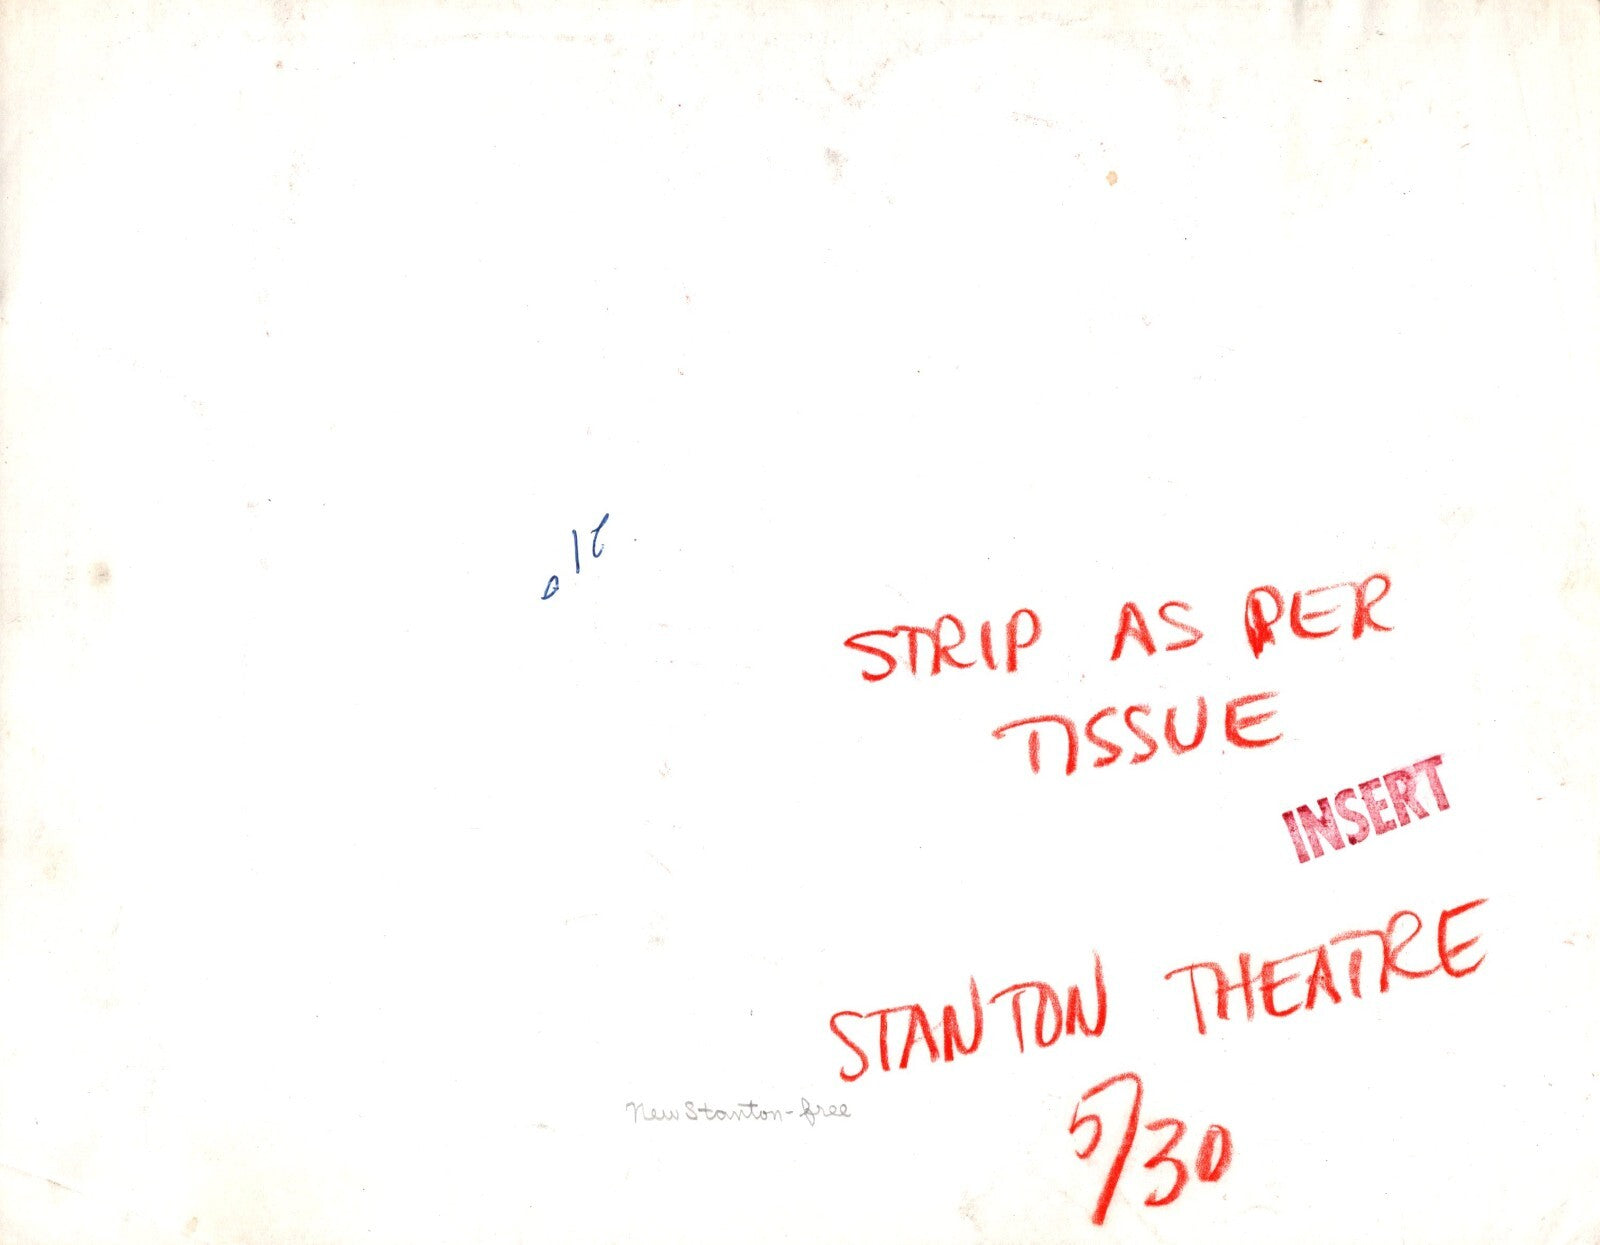 STRIP AS PER
TISSUE
INSERT
STANTON THEATRE
New Stanton - free
5/30